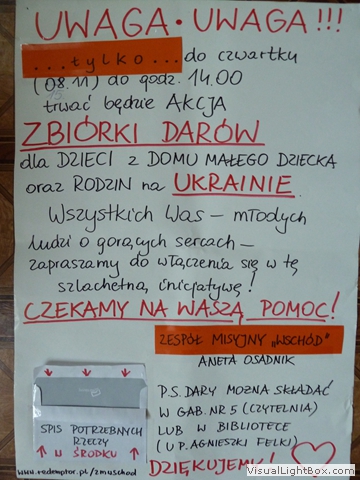 UWAGA • UWAGA !!!
...tylko... do czwartku
(08.11) do godz. 14.00
trwać będzie AKCJA
ZBIÓRKI DARÓW
dla DZIECI z DOMU MAŁEGO DZIECKA
oraz RODZIN na UKRAINIE
Wszystkich Was – młodych
ludzi o gorących sercach –
zapraszamy do włączenia się w tę
szlachetną inicjatywę!
CZEKAMY NA WASZĄ POMOC!
ZESPÓŁ MISYJNY „WSCHÓD"
ANETA OSADNIK
P.S. DARY MOŻNA SKŁADAĆ
W GAB. NR 5 (CZYTELNIA)
LUB W BIBLIOTECE
(U P. AGNIESZKI FELKI)
DZIĘKUJEMY!
SPIS POTRZEBNYCH
RZECZY
W ŚRODKU
www.redemptor.pl/zmwschod
VisualLightBox.com